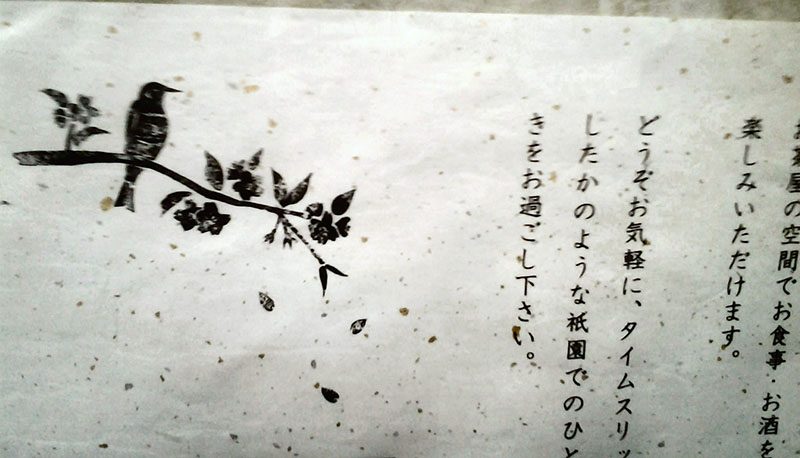 お茶屋の空間でお食事・お酒を
楽しみいただけます。
どうぞお気軽に、タイムスリッ
したかのような祇園でのひと
きをお過ごし下さい。